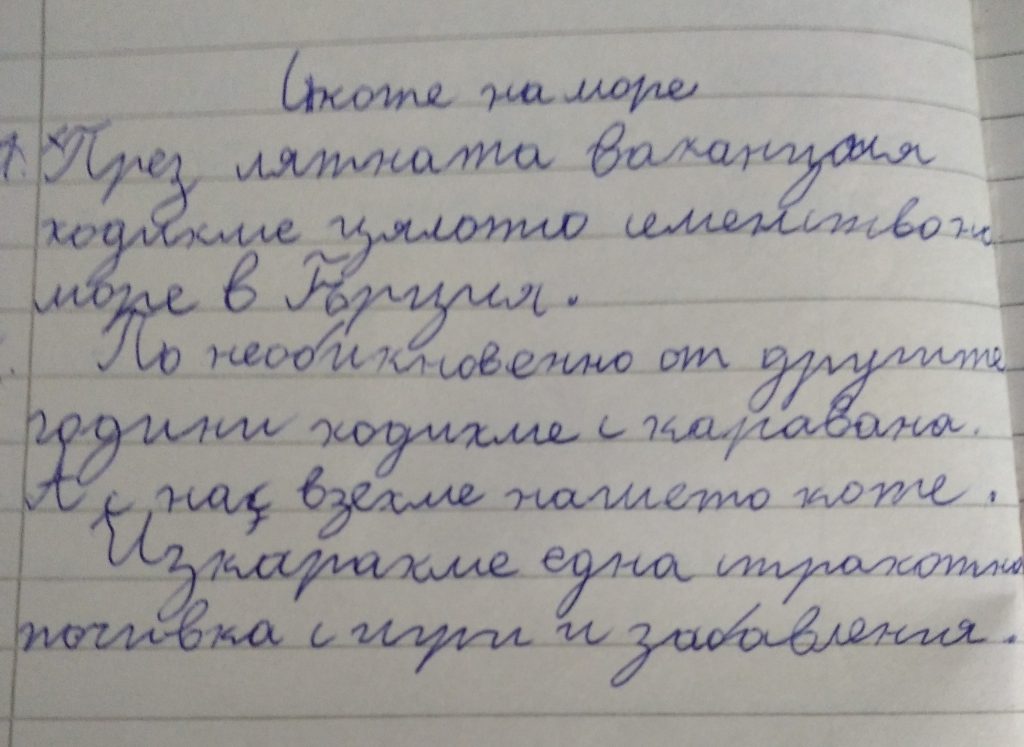 С коте на море
1. През лятната ваканция
ходихме цялото семейство на
море в Гърция.
По необикновенно от другите
години ходихме с каравана.
А с нас взехме нашето коте.
Изкарахме една страхотна
почивка с игри и забавления.